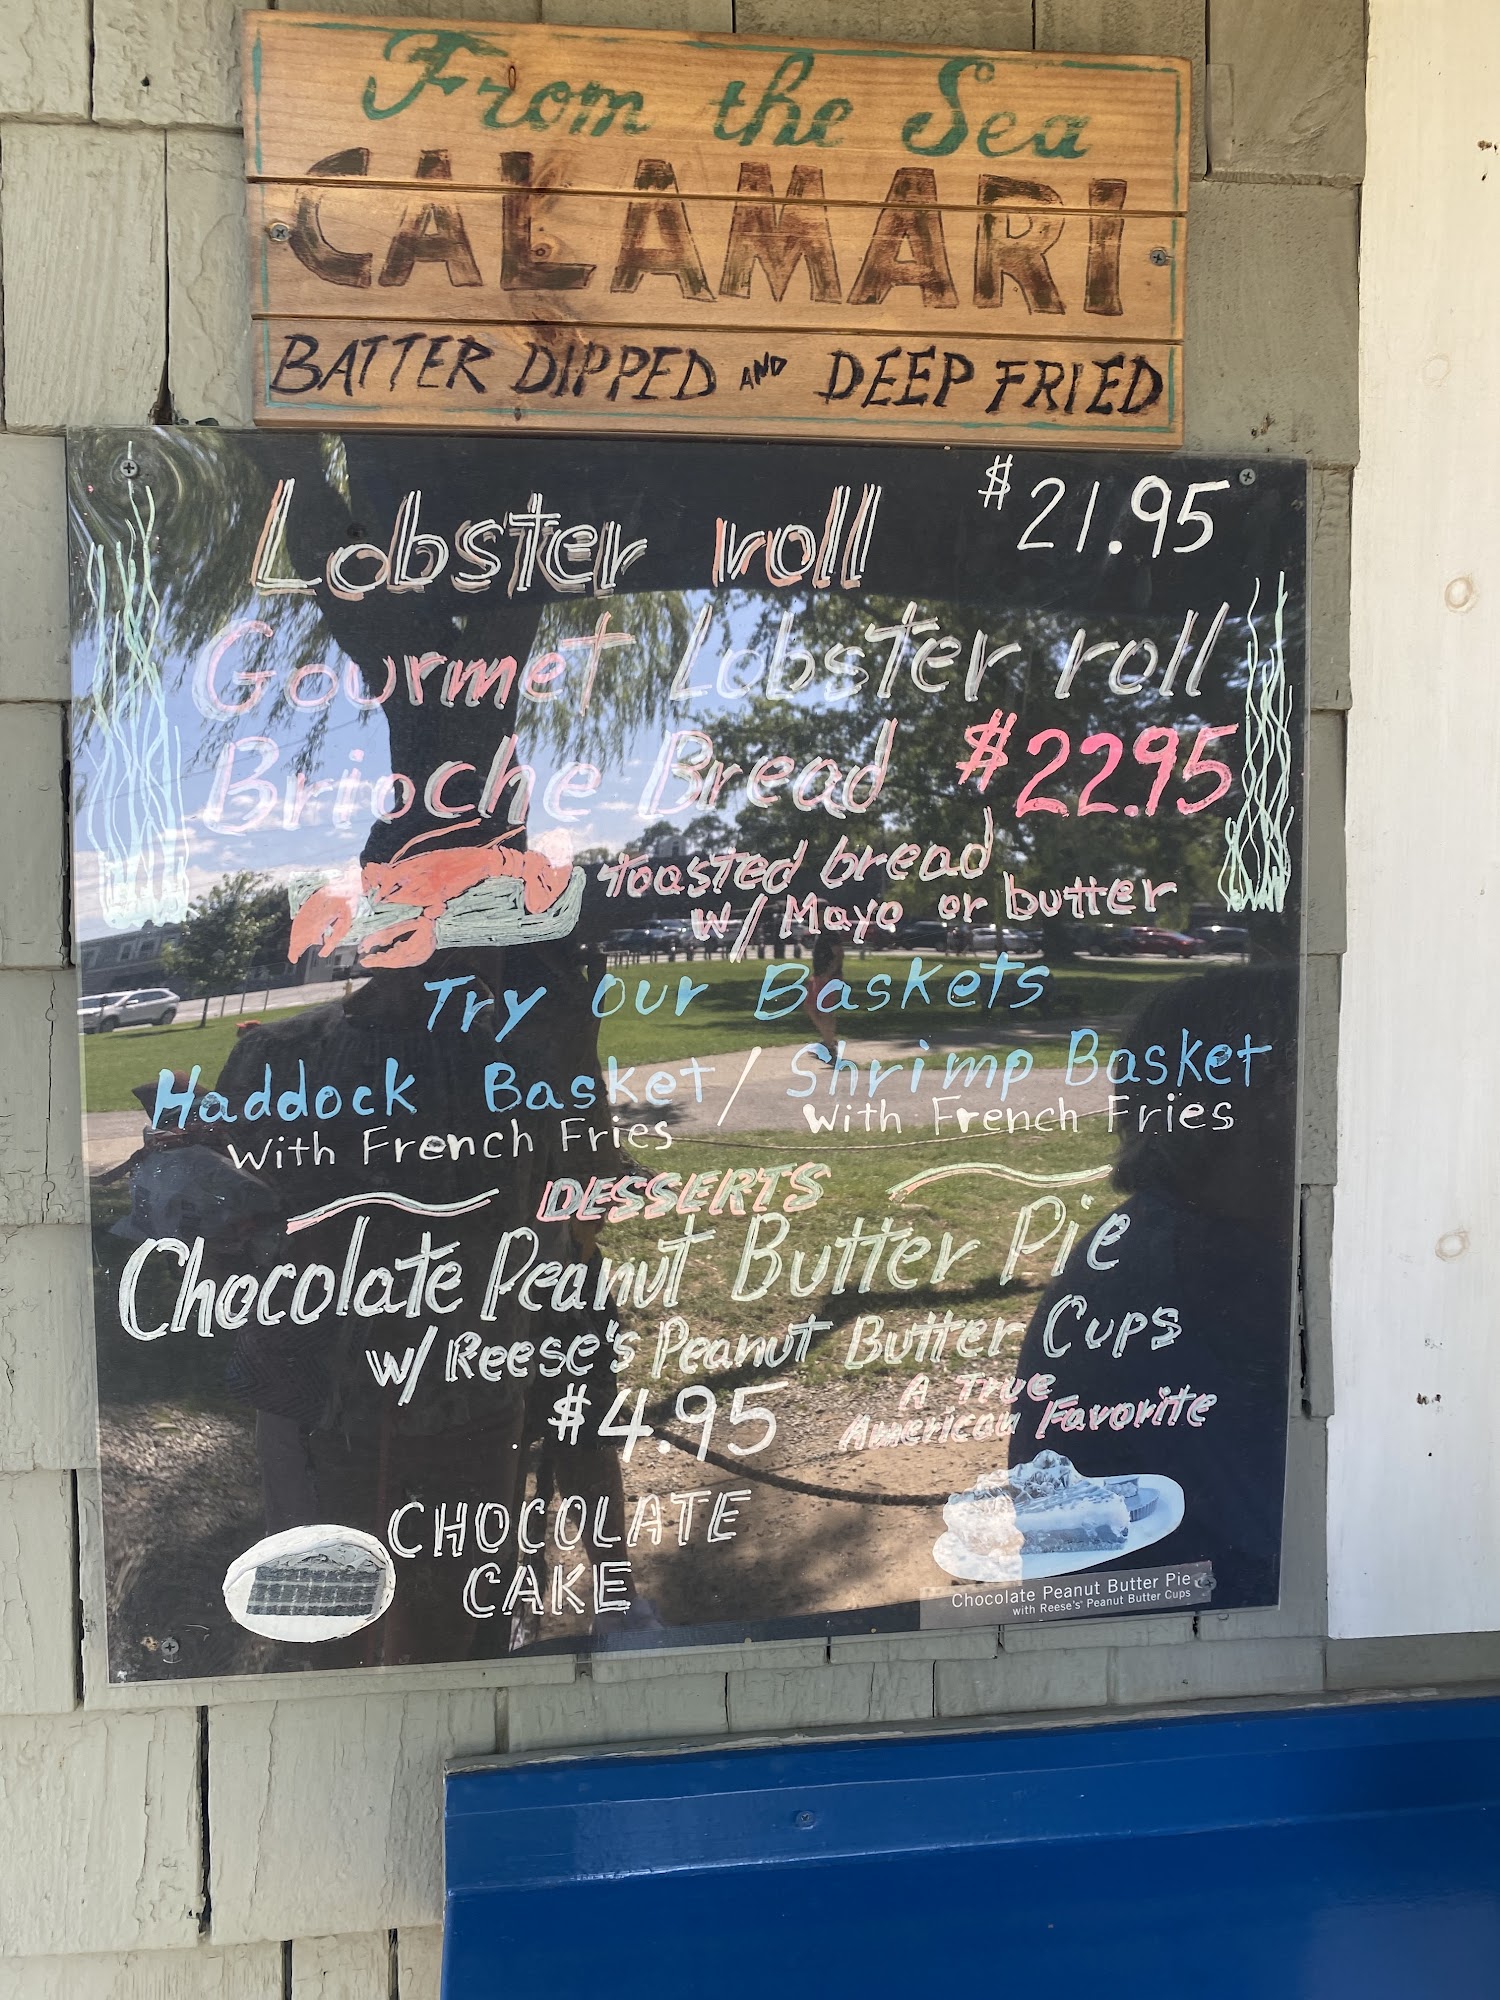 From the Sea
CALAMARI
BATTER DIPPED AND DEEP FRIED
Lobster roll $21.95
Gourmet Lobster roll
Brioche Bread $22.95
toasted bread
w/ Mayo or butter
Try Our Baskets
Haddock Basket / Shrimp Basket
With French Fries With French Fries
DESSERTS
Chocolate Peanut Butter Pie
w/ Reese's Peanut Butter Cups
$4.95
A True
American Favorite
CHOCOLATE
CAKE
Chocolate Peanut Butter Pie
with Reese's' Peanut Butter Cups